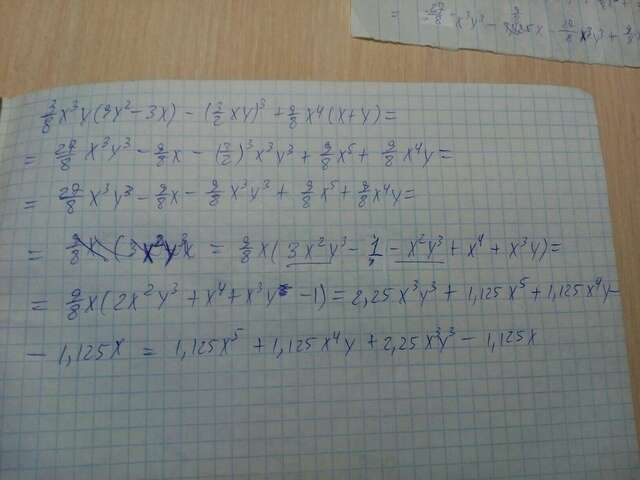 = 27/8 x³y³ - x - 27/8 x³y³ +
3/8 x³y(9y² - 3x) - (3/2 xy)³ + 9/8 x⁴(x+y) =
= 27/8 x³y³ - 9/8 x - (3/2)³ x³y³ + 9/8 x⁵ + 9/8 x⁴y =
= 27/8 x³y³ - 9/8 x - 9/8 x³y³ + 9/8 x⁵ + 9/8 x⁴y =
= 9/8 x(3x²y³ - 1 - x²y³ + x⁴ + x³y) =
= 9/8 x(2x²y³ + x⁴ + x³y - 1) = 2,25x³y³ + 1,125x⁵ + 1,125x⁴y -
- 1,125x = 1,125x⁵ + 1,125x⁴y + 2,25x³y³ - 1,125x